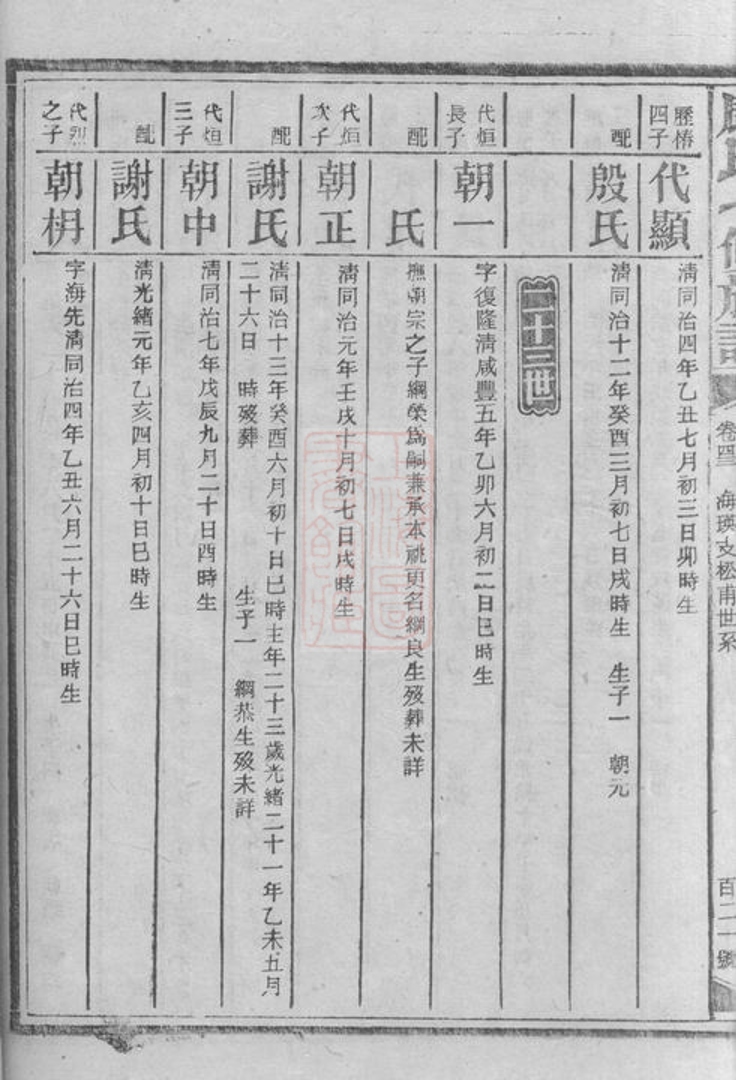 歷椿四子
代顯
清同治四年乙丑七月初三日卯時生
配
殷氏
清同治十二年癸酉三月初七日戌時生 生子一 朝元
二十三世
代烜長子
朝一
字復隆清咸豐五年乙卯六月初二日巳時生
配
氏
撫朝宗之子綱榮爲嗣兼承本祧更名綱良生歿葬未詳
代烜次子
朝正
清同治元年壬戌十月初七日戌時生
配
謝氏
清同治十三年癸酉六月初十日巳時生年二十三歲光緒二十一年乙未五月
二十六日 時歿葬 生子一 綱恭生歿未詳
代烜三子
朝中
清同治七年戊辰九月二十日酉時生
配
謝氏
清光緒元年乙亥四月初十日巳時生
代烈之子
朝枬
字海先清同治四年乙丑六月二十六日巳時生
海瑛支松甫世系